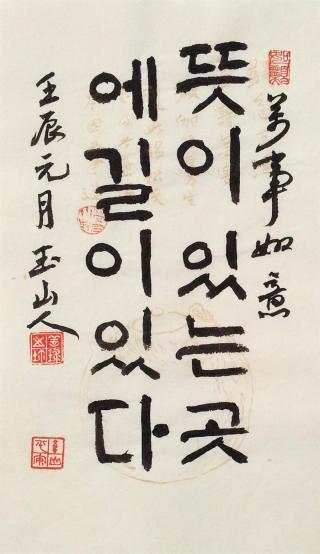 萬事如意
뜻이있는곳
에길이있다
壬辰元月 玉山人